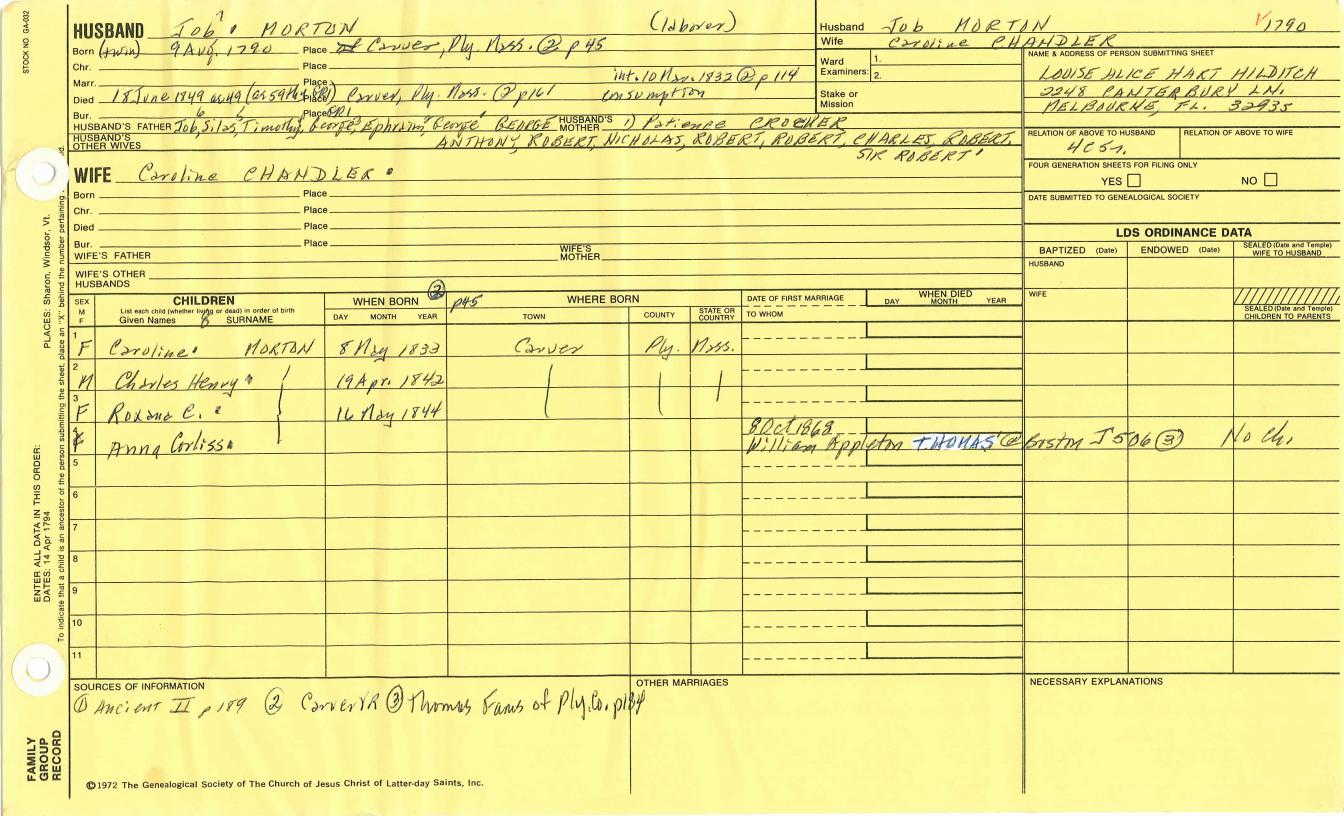 STOCK NO. GA-032
HUSBAND Job 7 MORTON (laborer)
Husband Job MORTON 1790
Wife Caroline CHANDLER
Born (twin) 9 Aug. 1790 Place Carver, Ply. Mass. ② p 45
Chr. Place
Marr. Place int. 10 Mar. 1832 ② p 114
Died 18 June 1849 Place Carver, Ply. Mass. ② p 161 consumption
Bur. Place
HUSBAND'S FATHER Job, Silas, Timothy, George, Ephraim, George GEORGE HUSBAND'S MOTHER 1) Patience CROCKER
HUSBAND'S OTHER WIVES ANTHONY, ROBERT, NICHOLAS, ROBERT, ROBERT, CHARLES, ROBERT,
SIR ROBERT
Ward Examiners: 1.
2.
Stake or Mission
NAME & ADDRESS OF PERSON SUBMITTING SHEET
LOUISE ALICE HART HILDITCH
2248 CANTERBURY LN.
MELBOURNE, FL. 32935
RELATION OF ABOVE TO HUSBAND RELATION OF ABOVE TO WIFE
4C5r.
FOUR GENERATION SHEETS FOR FILING ONLY
YES NO
DATE SUBMITTED TO GENEALOGICAL SOCIETY
WIFE Caroline CHANDLER
Born Place
Chr. Place
Died Place
Bur. Place
WIFE'S FATHER WIFE'S MOTHER
WIFE'S OTHER HUSBANDS
LDS ORDINANCE DATA
BAPTIZED (Date) ENDOWED (Date) SEALED (Date and Temple) WIFE TO HUSBAND
HUSBAND
WIFE
SEALED (Date and Temple) CHILDREN TO PARENTS
SEX M F
CHILDREN
List each child (whether living or dead) in order of birth
Given Names 8 SURNAME
WHEN BORN ② p45
DAY MONTH YEAR
WHERE BORN
TOWN COUNTY STATE OR COUNTRY
DATE OF FIRST MARRIAGE
TO WHOM
WHEN DIED
DAY MONTH YEAR
1 F Caroline MORTON 8 May 1833 Carver Ply. Mass.
2 M Charles Henry 19 Apr. 1842
3 F Roxana C. 16 May 1844
4 F Anna Corliss 8 Oct 1868
William Appleton THOMAS @ Boston J506 ③ No Ch.
5
6
7
8
9
10
11
SOURCES OF INFORMATION
① Ancient II p 189 ② Carver VR ③ Thomas Fams of Ply. Co. p184
OTHER MARRIAGES
NECESSARY EXPLANATIONS
©1972 The Genealogical Society of The Church of Jesus Christ of Latter-day Saints, Inc.
FAMILY GROUP RECORD
ENTER ALL DATA IN THIS ORDER:
DATES: 14 Apr 1794
PLACES: Sharon, Windsor, Vt.
To indicate that a child is an ancestor of the person submitting the sheet, place an "X" behind the number pertaining